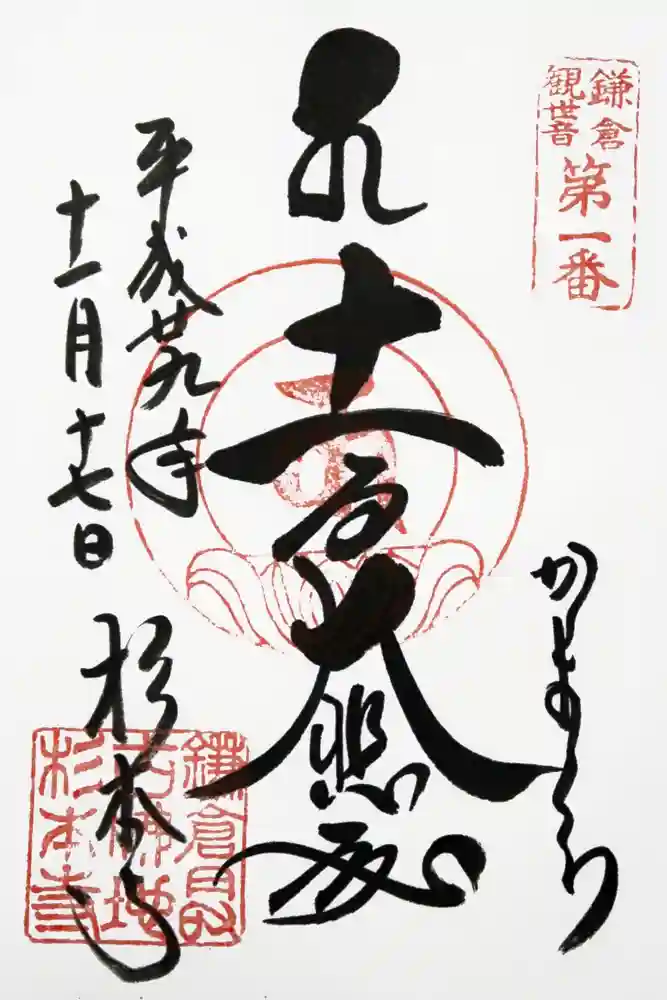 鎌倉
観世音
第一番
かまくら
十一面大悲殿
平成廿九年
十一月十七日
杉本寺
鎌倉最
古佛地
杉本寺